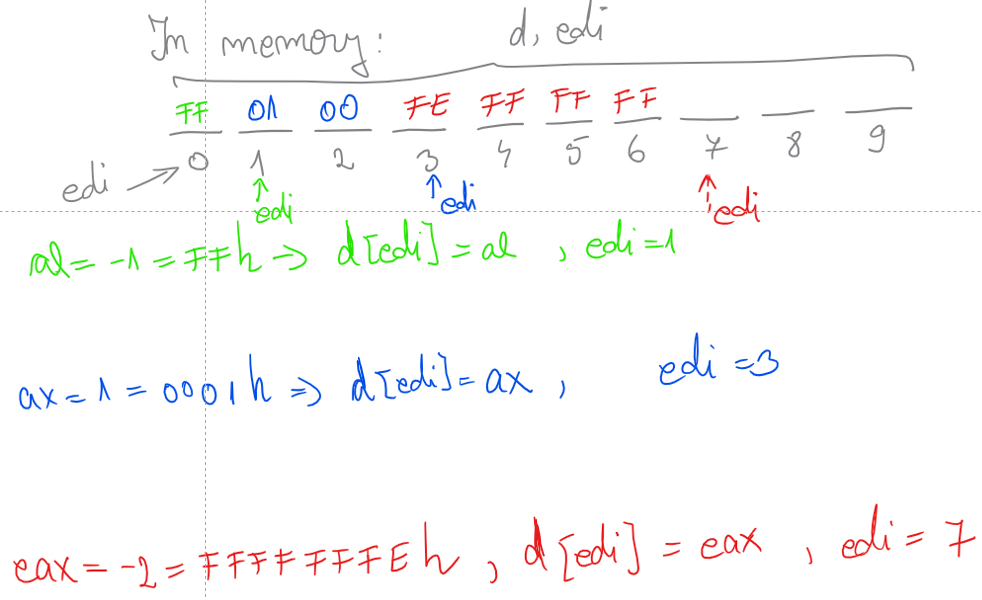 In memory: d, edi
FF 01 00 FE FF FF FF
0 1 2 3 4 5 6 7 8 9
edi → ↑edi ↑edi ↑edi
al = -1 = FFh => d[edi] = al , edi = 1
ax = 1 = 0001h => d[edi] = ax , edi = 3
eax = -2 = FFFFFFFEh , d[edi] = eax , edi = 7